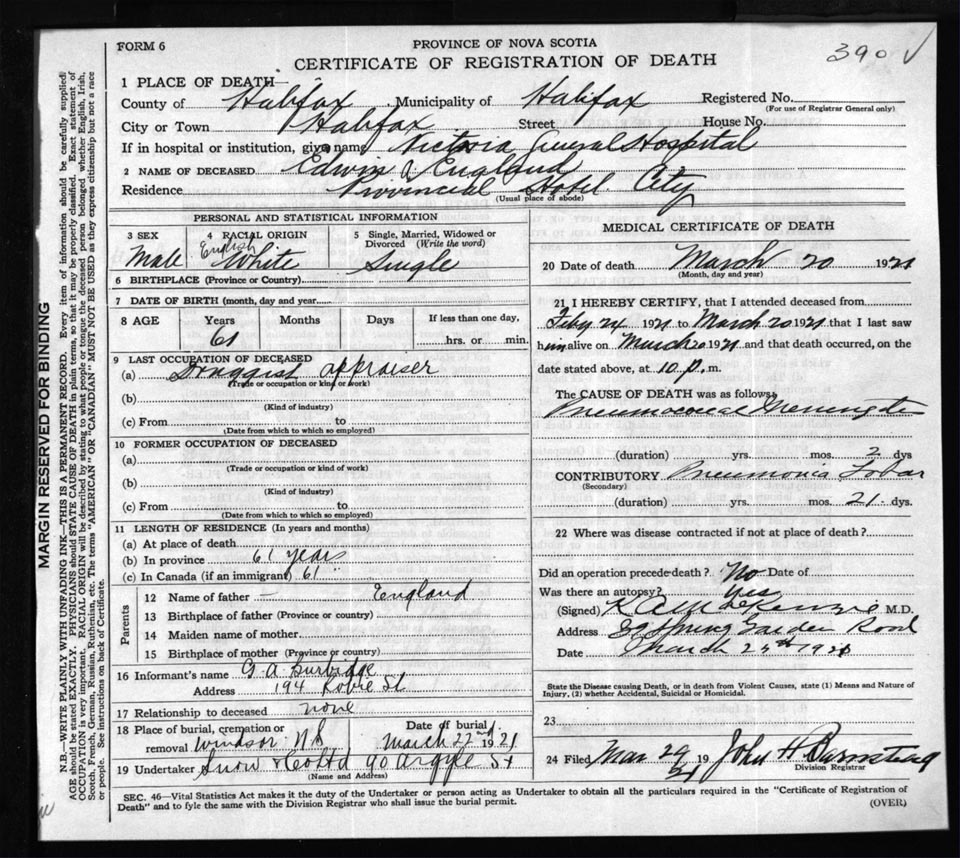 FORM 6
PROVINCE OF NOVA SCOTIA
CERTIFICATE OF REGISTRATION OF DEATH
390 ✓
1 PLACE OF DEATH
County of Halifax Municipality of Halifax Registered No.
(For use of Registrar General only)
City or Town Halifax Street House No.
If in hospital or institution, give name Victoria General Hospital
2 NAME OF DECEASED Edwin England
Residence Provincial Hotel. City
(Usual place of abode)
PERSONAL AND STATISTICAL INFORMATION
3 SEX 4 RACIAL ORIGIN 5 Single, Married, Widowed or Divorced (Write the word)
Male English White Single
6 BIRTHPLACE (Province or Country)
7 DATE OF BIRTH (month, day and year)
8 AGE Years Months Days If less than one day,
61 hrs. or min.
9 LAST OCCUPATION OF DECEASED
(a) Druggist appraiser
(Trade or occupation or kind of work)
(b)
(Kind of industry)
(c) From to
(Date from which to which so employed)
10 FORMER OCCUPATION OF DECEASED
(a)
(Trade or occupation or kind of work)
(b)
(Kind of industry)
(c) From to
(Date from which to which so employed)
11 LENGTH OF RESIDENCE (In years and months)
(a) At place of death
(b) In province 61 years
(c) In Canada (if an immigrant) 61 "
Parents
12 Name of father — England
13 Birthplace of father (Province or country)
14 Maiden name of mother
15 Birthplace of mother (Province or country)
16 Informant's name G. A. Burbidge
Address 194 Robie St
17 Relationship to deceased none
18 Place of burial, cremation or Date of burial
removal Windsor. NS March 22nd 1921
19 Undertaker Snow & Co Ltd 90 Argyle St
(Name and Address)
MEDICAL CERTIFICATE OF DEATH
20 Date of death March 20 1921
(Month, day and year)
21 I HEREBY CERTIFY, that I attended deceased from
Feby 24 1921 to March 20 1921 that I last saw
him alive on March 20 1921 and that death occurred, on the
date stated above, at 10 p. m.
The CAUSE OF DEATH was as follows:
Pneumococcal Meningitis
(duration) yrs. mos. 2 dys
CONTRIBUTORY Pneumonia Lobar
(Secondary)
(duration) yrs. mos. 21 dys.
22 Where was disease contracted if not at place of death?
Did an operation precede death? No Date of
Was there an autopsy? Yes
(Signed) K A MacKenzie M.D.
Address 89 Spring Garden Road
Date March 25th 1921
State the Disease causing Death, or in death from Violent Causes, state (1) Means and Nature of
Injury, (2) whether Accidental, Suicidal or Homicidal.
23
24 Filed Mar 29 19 21 John H Barnstead
Division Registrar
SEC. 46—Vital Statistics Act makes it the duty of the Undertaker or person acting as Undertaker to obtain all the particulars required in the "Certificate of Registration of
Death" and to fyle the same with the Division Registrar who shall issue the burial permit.
(OVER)
MARGIN RESERVED FOR BINDING
N.B.—WRITE PLAINLY WITH UNFADING INK—THIS IS A PERMANENT RECORD. Every item of information should be carefully supplied.
AGE should be stated EXACTLY. PHYSICIANS should STATE CAUSE OF DEATH in plain terms, so that it may be properly classified. Exact statement of
OCCUPATION is very important. RACIAL ORIGIN will be described by stating to what people or tongue the deceased person belonged whether English, Irish,
Scotch, French, German, Russian, Ruthenian, etc. The terms "AMERICAN" OR "CANADIAN" MUST NOT BE USED as they express citizenship but not a race
or people. See instructions on back of Certificate.